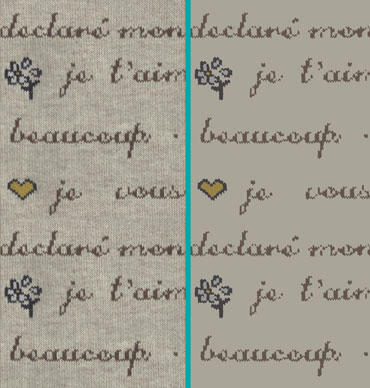 declaré mon declaré mon
je t'aim je t'aim
beaucoup . beaucoup .
je vous je vous
declaré mon declaré mon
je t'aim je t'aim
beaucoup . beaucoup .